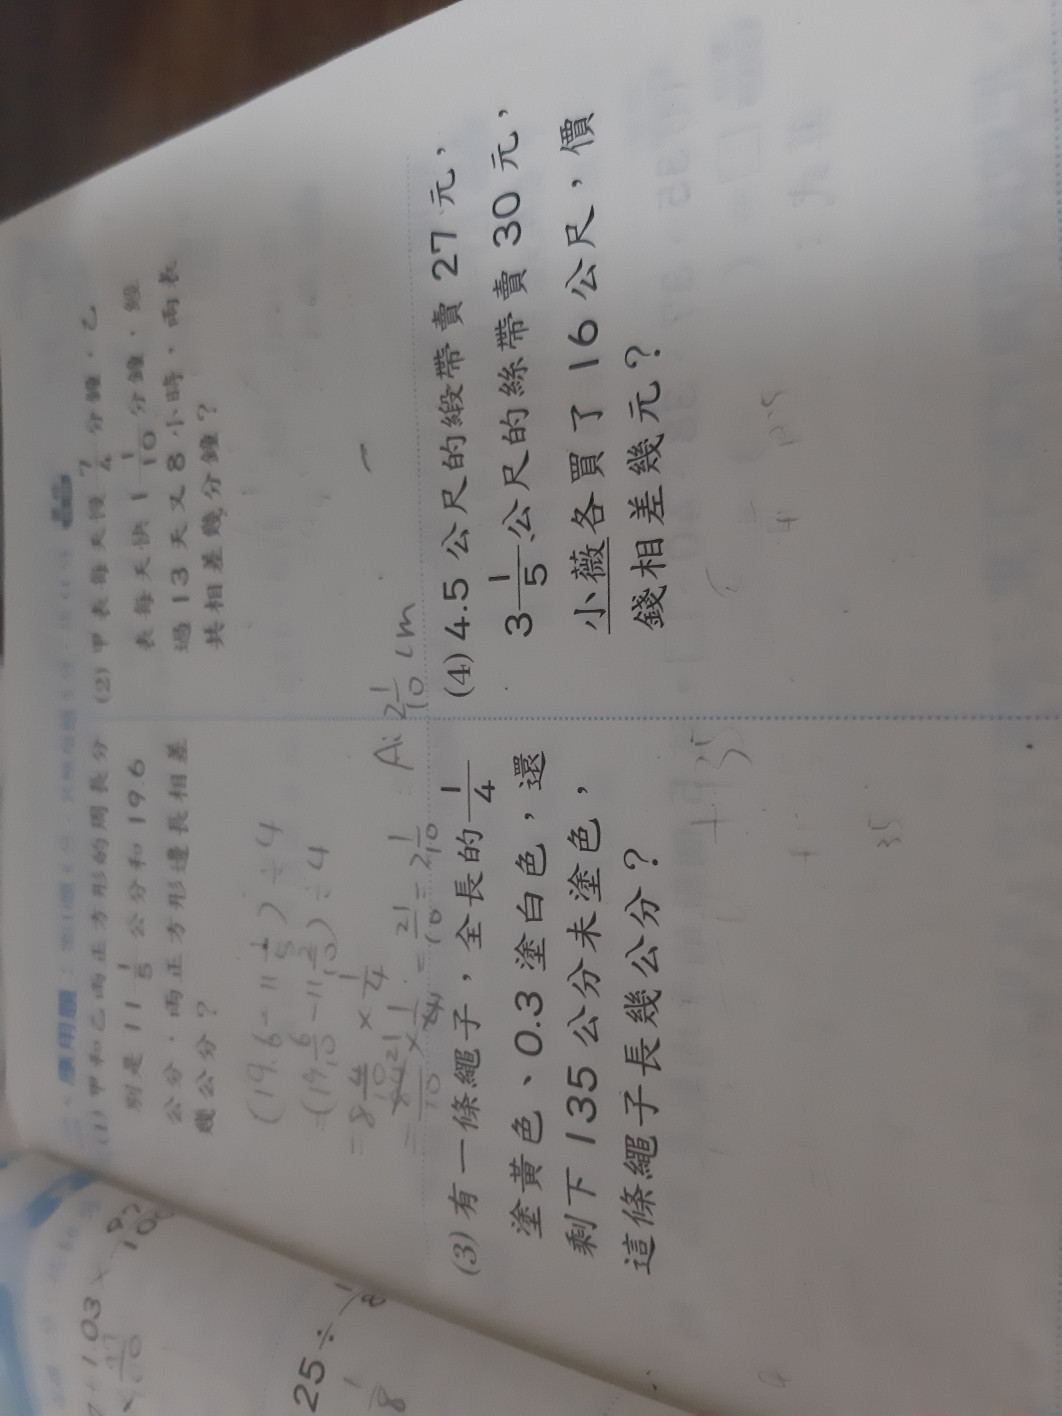 應用題：
(1) 甲和乙兩正方形的周長分
別是 11 1/5 公分和 19.6
公分，兩正方形邊長相差
幾公分？
(19.6-11 1/5)÷4
=(19 6/10-11 2/10)÷4
=8 4/10×1/4
=84/10×1/4=21/10=2 1/10
A: 2 1/10 cm
(2) 甲表每天慢 7/4 分鐘，乙
表每天快 1 1/10 分鐘，經
過 13 天又 8 小時，兩表
共相差幾分鐘？
(3) 有一條繩子，全長的 1/4
塗黃色、0.3 塗白色，還
剩下 135 公分未塗色，
這條繩子長幾公分？
35
35
(4) 4.5 公尺的緞帶賣 27 元，
3 1/5 公尺的絲帶賣 30 元，
小薇各買了 16 公尺，價
錢相差幾元？
1.03×
25÷
1/8